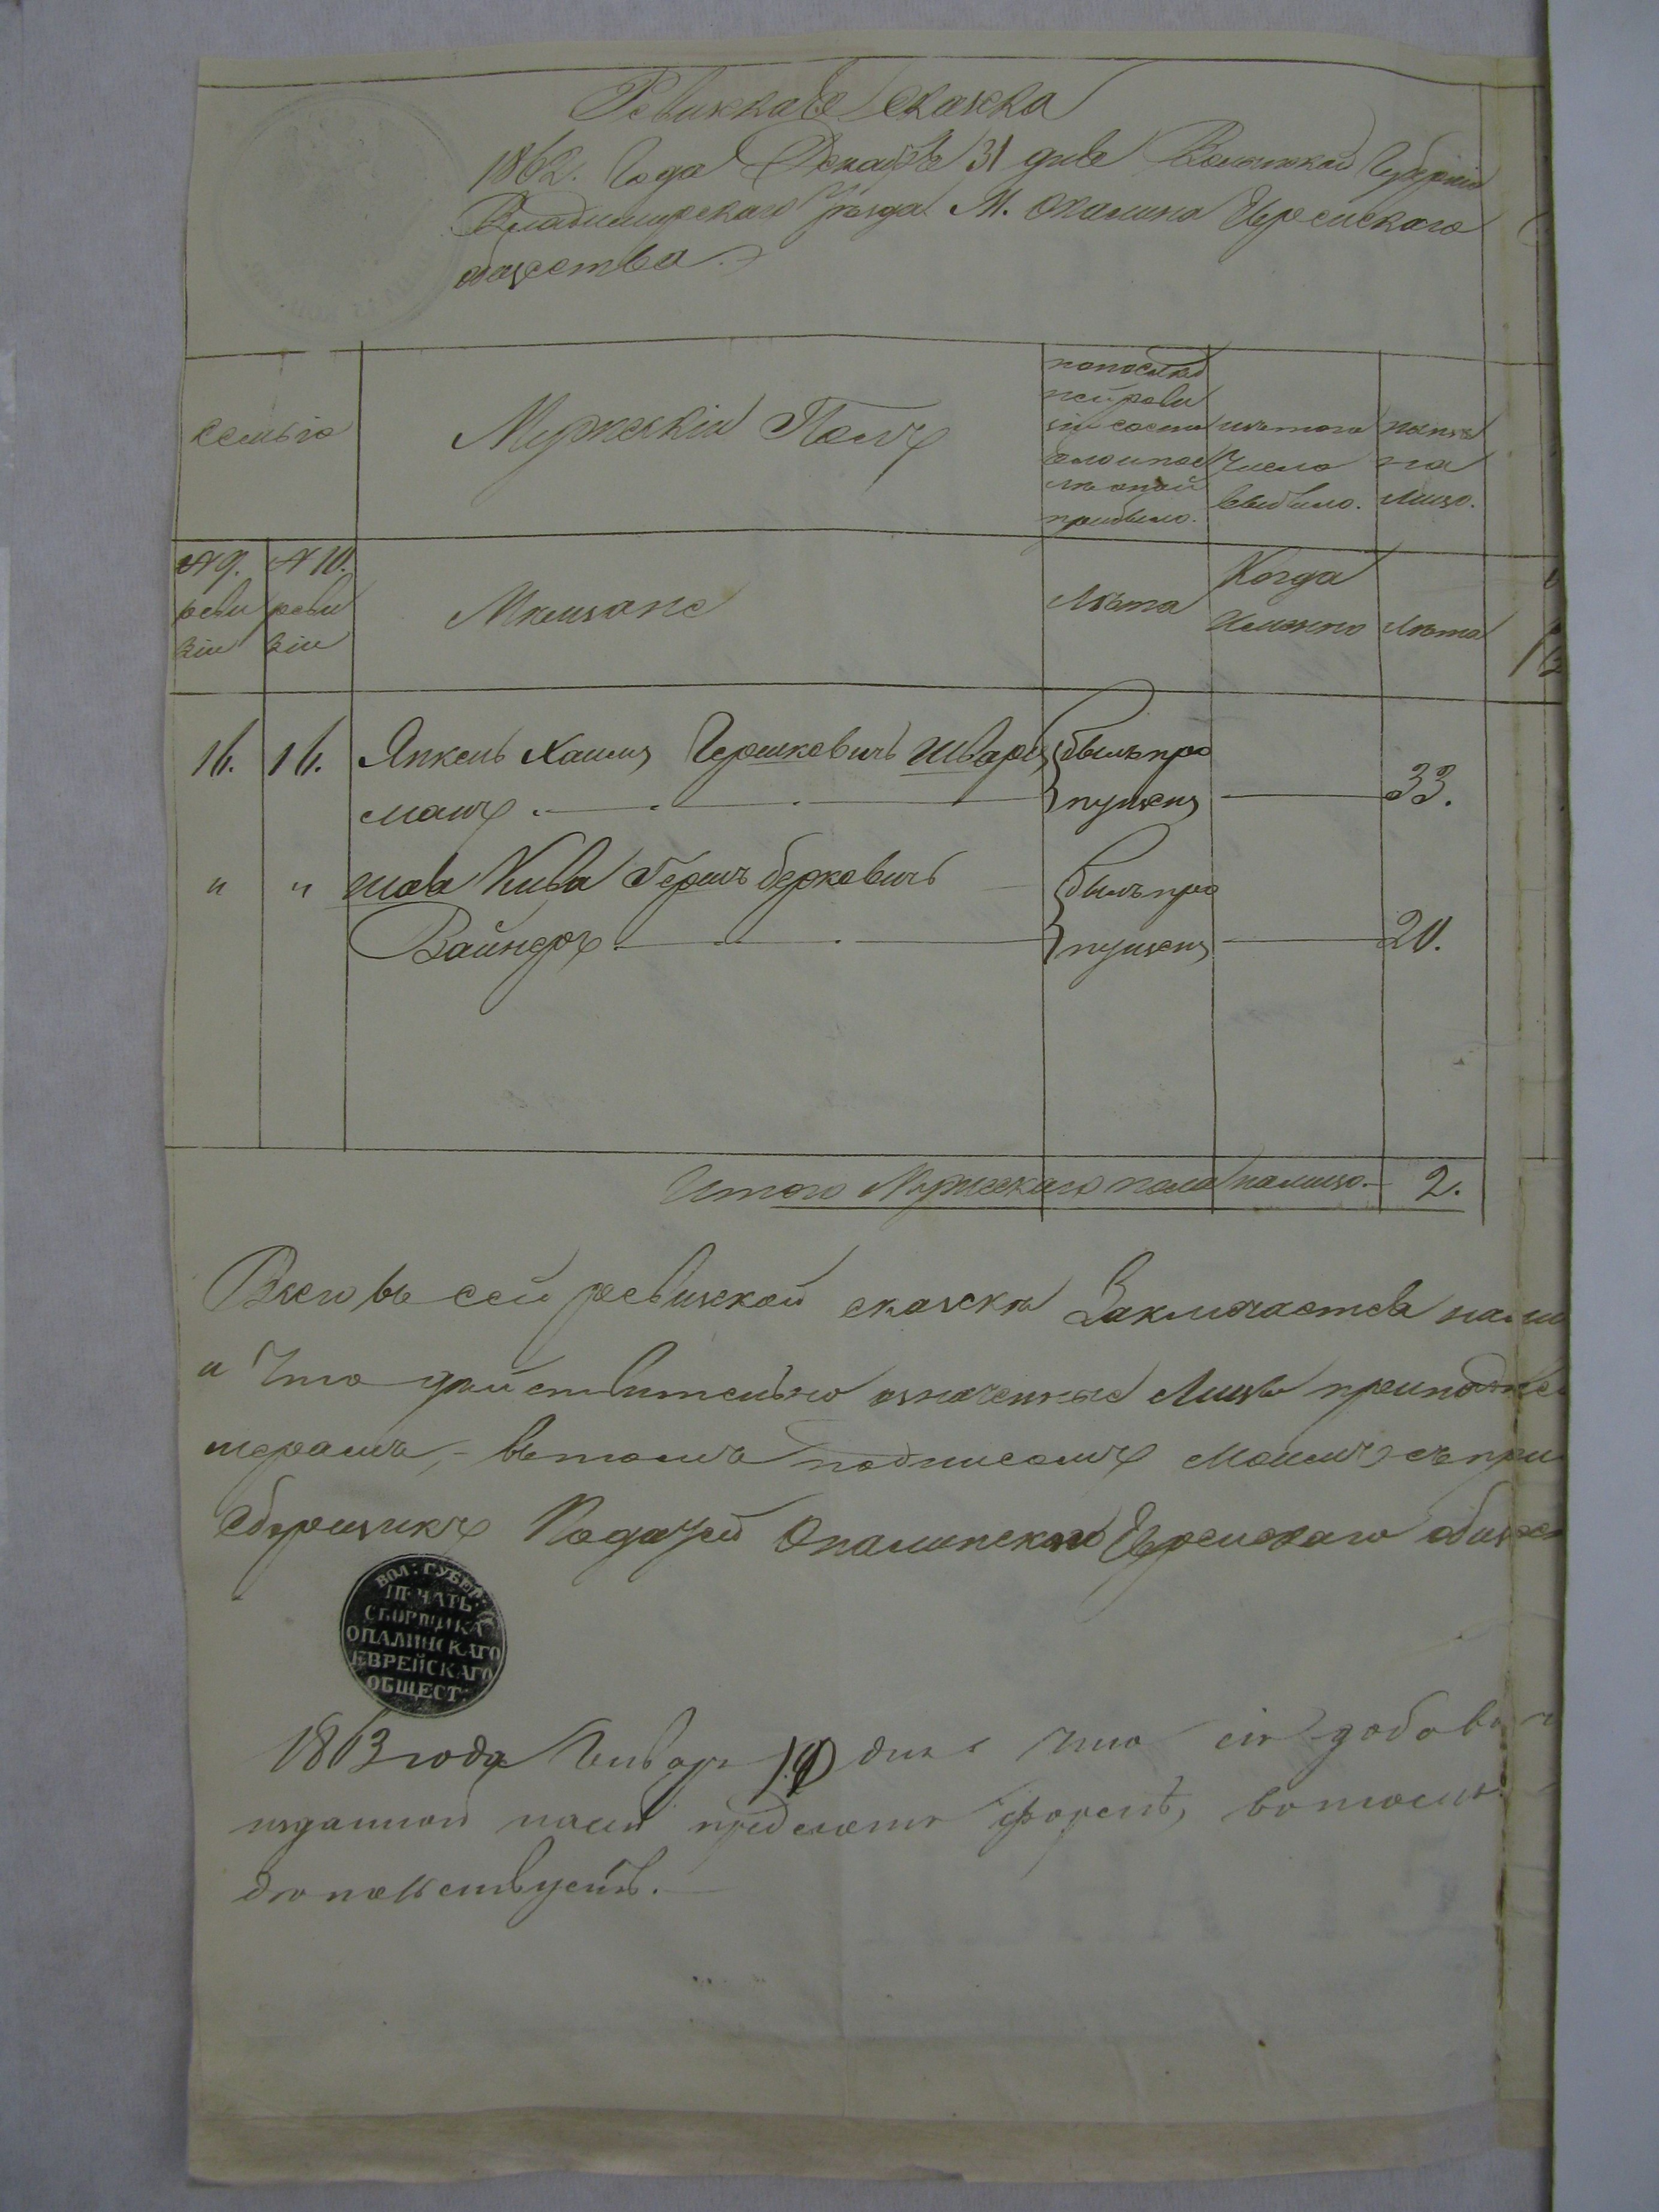 Ревижская Сказка
1862. Года Декабря 31 дня Волынской Губерніи
Владимирскаго уѣзда М. Опалина Еврейскаго
общества.
семьи
Мужескій Полъ
попослед
ней реви
зіи состо
яло и пос
лѣ оной
прибыло.
изъ того
числа
выбыло.
нынѣ
на
лицо.
№ 9.
реви
зіи
№ 10.
реви
зіи
Мѣщане
Лѣта
Когда
Именно
Лѣта
16. 16. Янкель Хаимъ Гершковичъ Шварц
манъ
былъ про
пущенъ
33.
" " Шая Кива Гершъ Берковичъ
Вайнеръ
былъ про
пущенъ
20.
Итого Мужескаго пола налицо 2.
Всего въ сей ревизской сказкѣ Заключается
и Что действительно означенные Лица
въ томъ подписомъ моимъ съ при
Сборщикъ Податей Опалинскаго Еврейскаго общест
ВОЛ: ГУБЕР:
ПЕЧАТЬ
СБОРЩИКА
ОПАЛИНСКАГО
ЕВРЕЙСКАГО
ОБЩЕСТ:
1863 года Января 19 дня Что сія добавоч
изданной формѣ, въ томъ